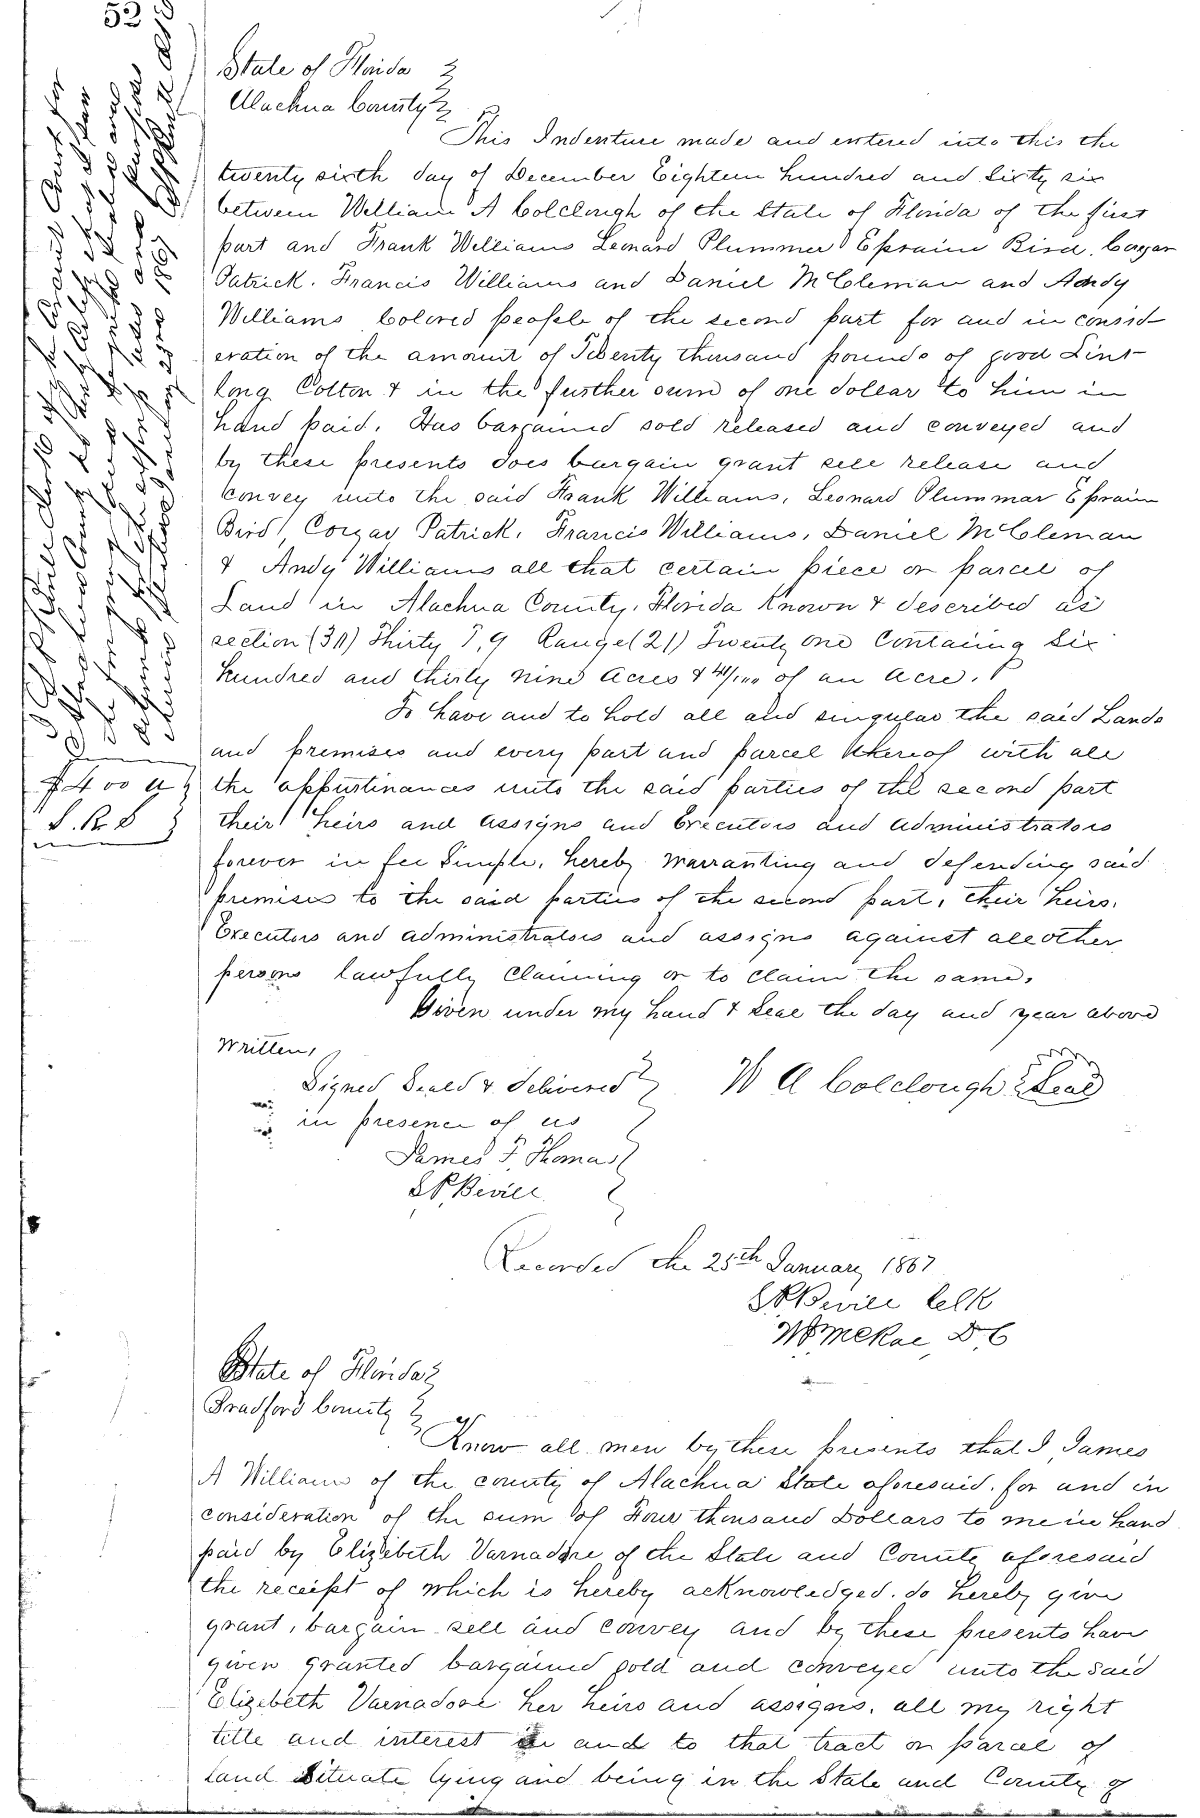 52
State of Florida
Alachua County
This Indenture made and entered into this the
twenty sixth day of December Eighteen hundred and Sixty six
between William A Colclough of the State of Florida of the first
part and Frank Williams Leonard Plummer Epraim Bird. Cozar
Patrick. Francis Williams and Daniel McCleman and Andy
Williams Colored people of the second part for and in consid-
eration of the amount of Twenty thousand pounds of good Lint
long Cotton & in the further sum of one dollar to him in
hand paid. Has bargained sold released and conveyed and
by these presents does bargain grant sell release and
convey unto the said Frank Williams, Leonard Plummar Epraim
Bird, Cozar Patrick, Francis Williams, Daniel McCleman
& Andy Williams all that certain piece or parcel of
Land in Alachua County, Florida Known & described as
section Thirty T, 9 Range (21) Twenty one Containg Six
hundred and thirty nine Acres & of an Acre.
To have and to hold all and singular the said Lands
and premises and every part and parcel thereof with all
the appurtinances unto the said parties of the second part
their heirs and assigns and Executors and administrators
forever in fee Simple, hereby warranting and defending said
premises to the said parties of the second part, their heirs,
Executors and administrators and assigns against all other
persons lawfully claiming or to claim the same.
Given under my hand & Seal the day and year above
Written,
Signed Seald & delivered W A Colclough Seal
in presence of us
James F. Thomas
S P Bevill
Recorded the 25th January 1867
S P Bevill Celk
McRae D.C
State of Florida
Bradford County
Know all men by these presents that I, James
A Williams of the county of Alachua State aforesaid. for and in
consideration of the sum of Four thousand Dollars to me in hand
paid by Elizebeth Varnadore of the State and County aforesaid
the receipt of which is hereby acknowledged. do hereby give
grant, bargain sell and convey and by these presents have
given granted bargained sold and conveyed unto the said
Elizebeth Varnadore her heirs and assigns, all my right
title and interest in and to that tract or parcel of
land Situate lying and being in the State and County of